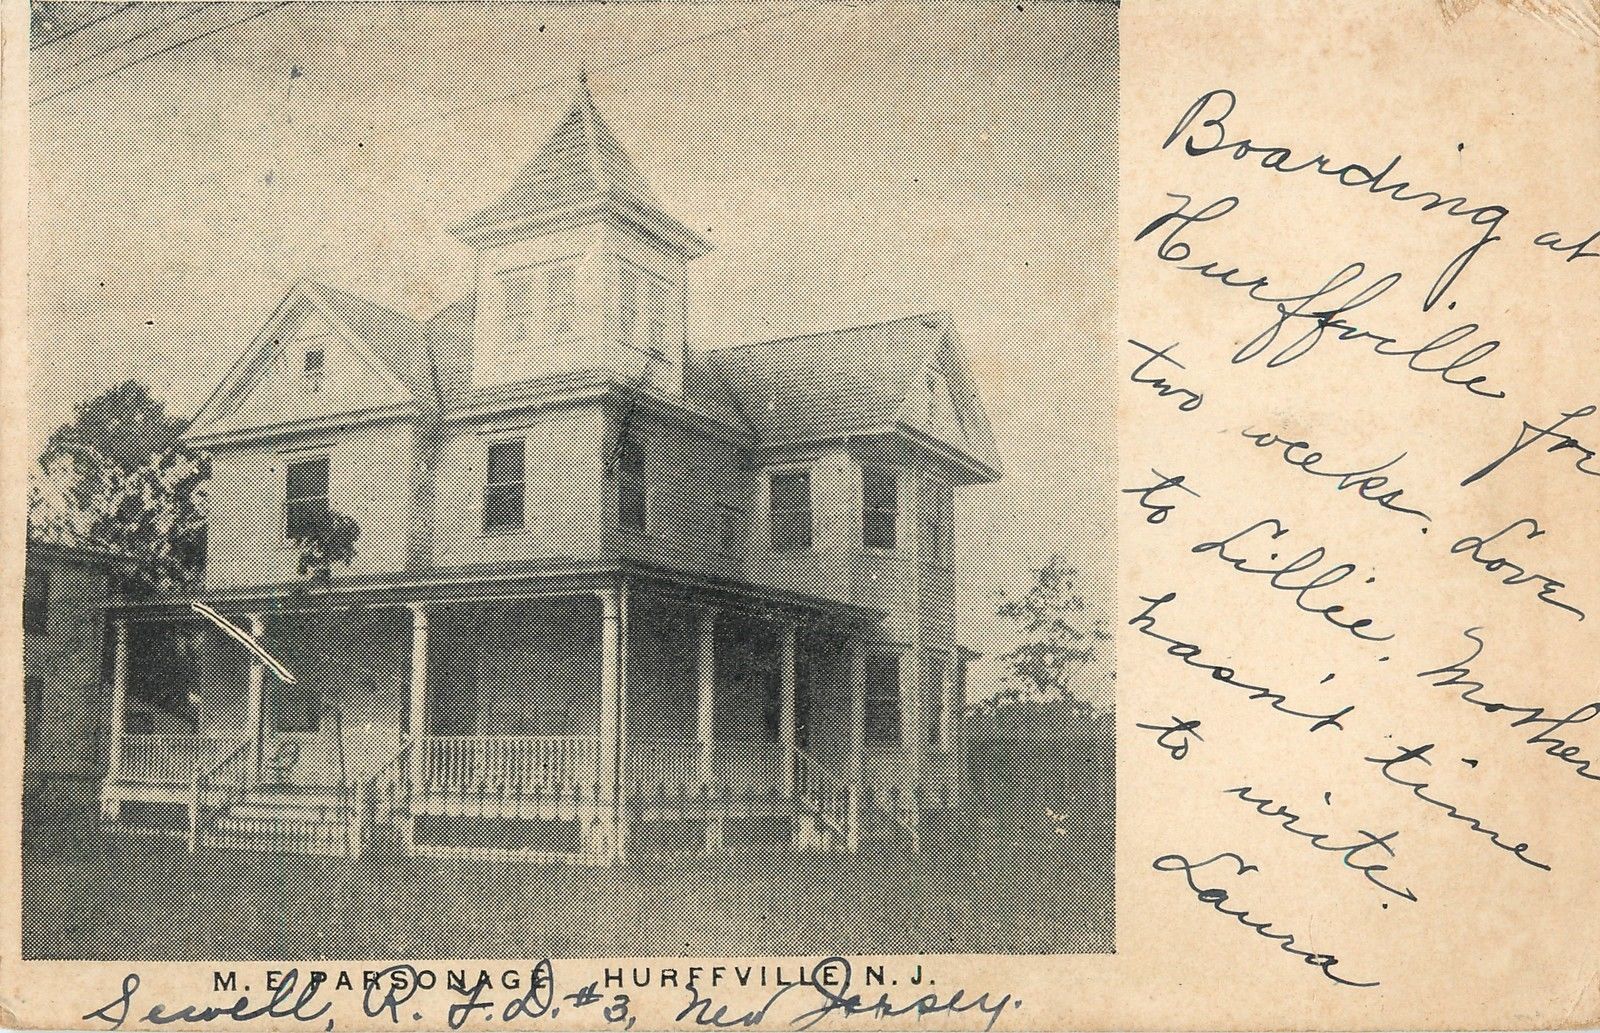 Boarding at
Hurffville for
two weeks. Love
to Lillie. Mother
hasn't time
to write.
Laura
M. E. PARSONAGE HURFFVILLE N. J.
Sewell, R. F. D. #3, New Jersey.